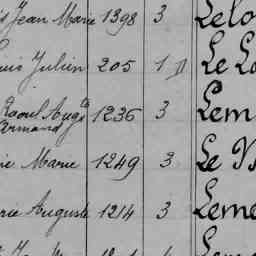 Jean Marie 1398 3 Lelo
uis Julien 205 1 Le L
Raoul Aug^te 1236 3 Lem
Armand
rie Marie 1249 3 Le
rie Auguste 1214 3 Leme